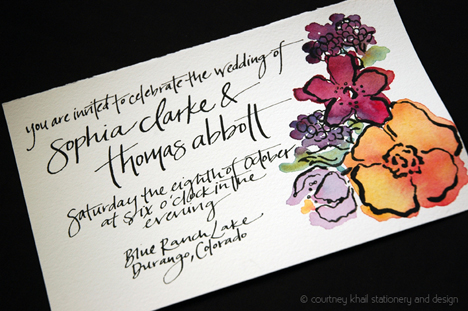 you are invited to celebrate the wedding of
Sophia clarke &
thomas abbott
Saturday the eighth of October
at six o'clock in the
evening
Blue Ranch Lake
Durango, Colorado
© courtney khail stationery and design